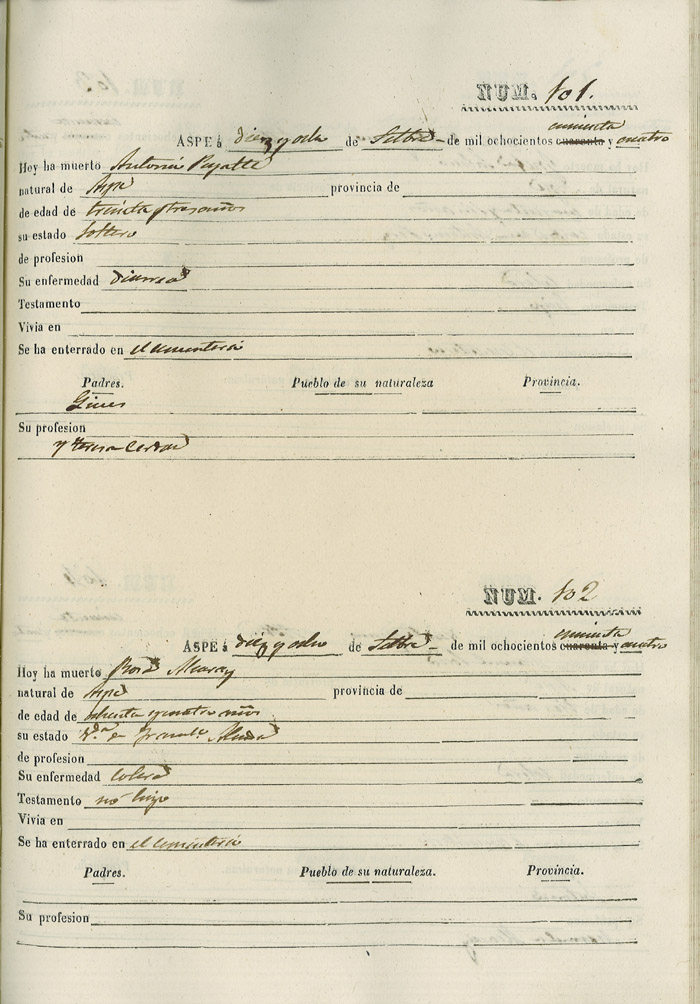 NUM. 101.
cincuenta
ASPE á diez y ocho de Setbre de mil ochocientos cuarenta y cuatro
Hoy ha muerto Antonia
natural de Aspe provincia de
de edad de treinta y tres años
su estado Soltera
de profesion
Su enfermedad diarrea
Testamento
Vivia en
Se ha enterrado en el cementerio
Padres. Pueblo de su naturaleza Provincia.
Gines
Su profesion
y Teresa
NUM. 102
cincuenta
ASPE á diez y ocho de Setbre de mil ochocientos cuarenta y cuatro
Hoy ha muerto
natural de Aspe provincia de
de edad de ochenta y cuatro años
su estado V.da de
de profesion
Su enfermedad Colera
Testamento no hizo
Vivia en
Se ha enterrado en el cementerio
Padres. Pueblo de su naturaleza. Provincia.
Su profesion